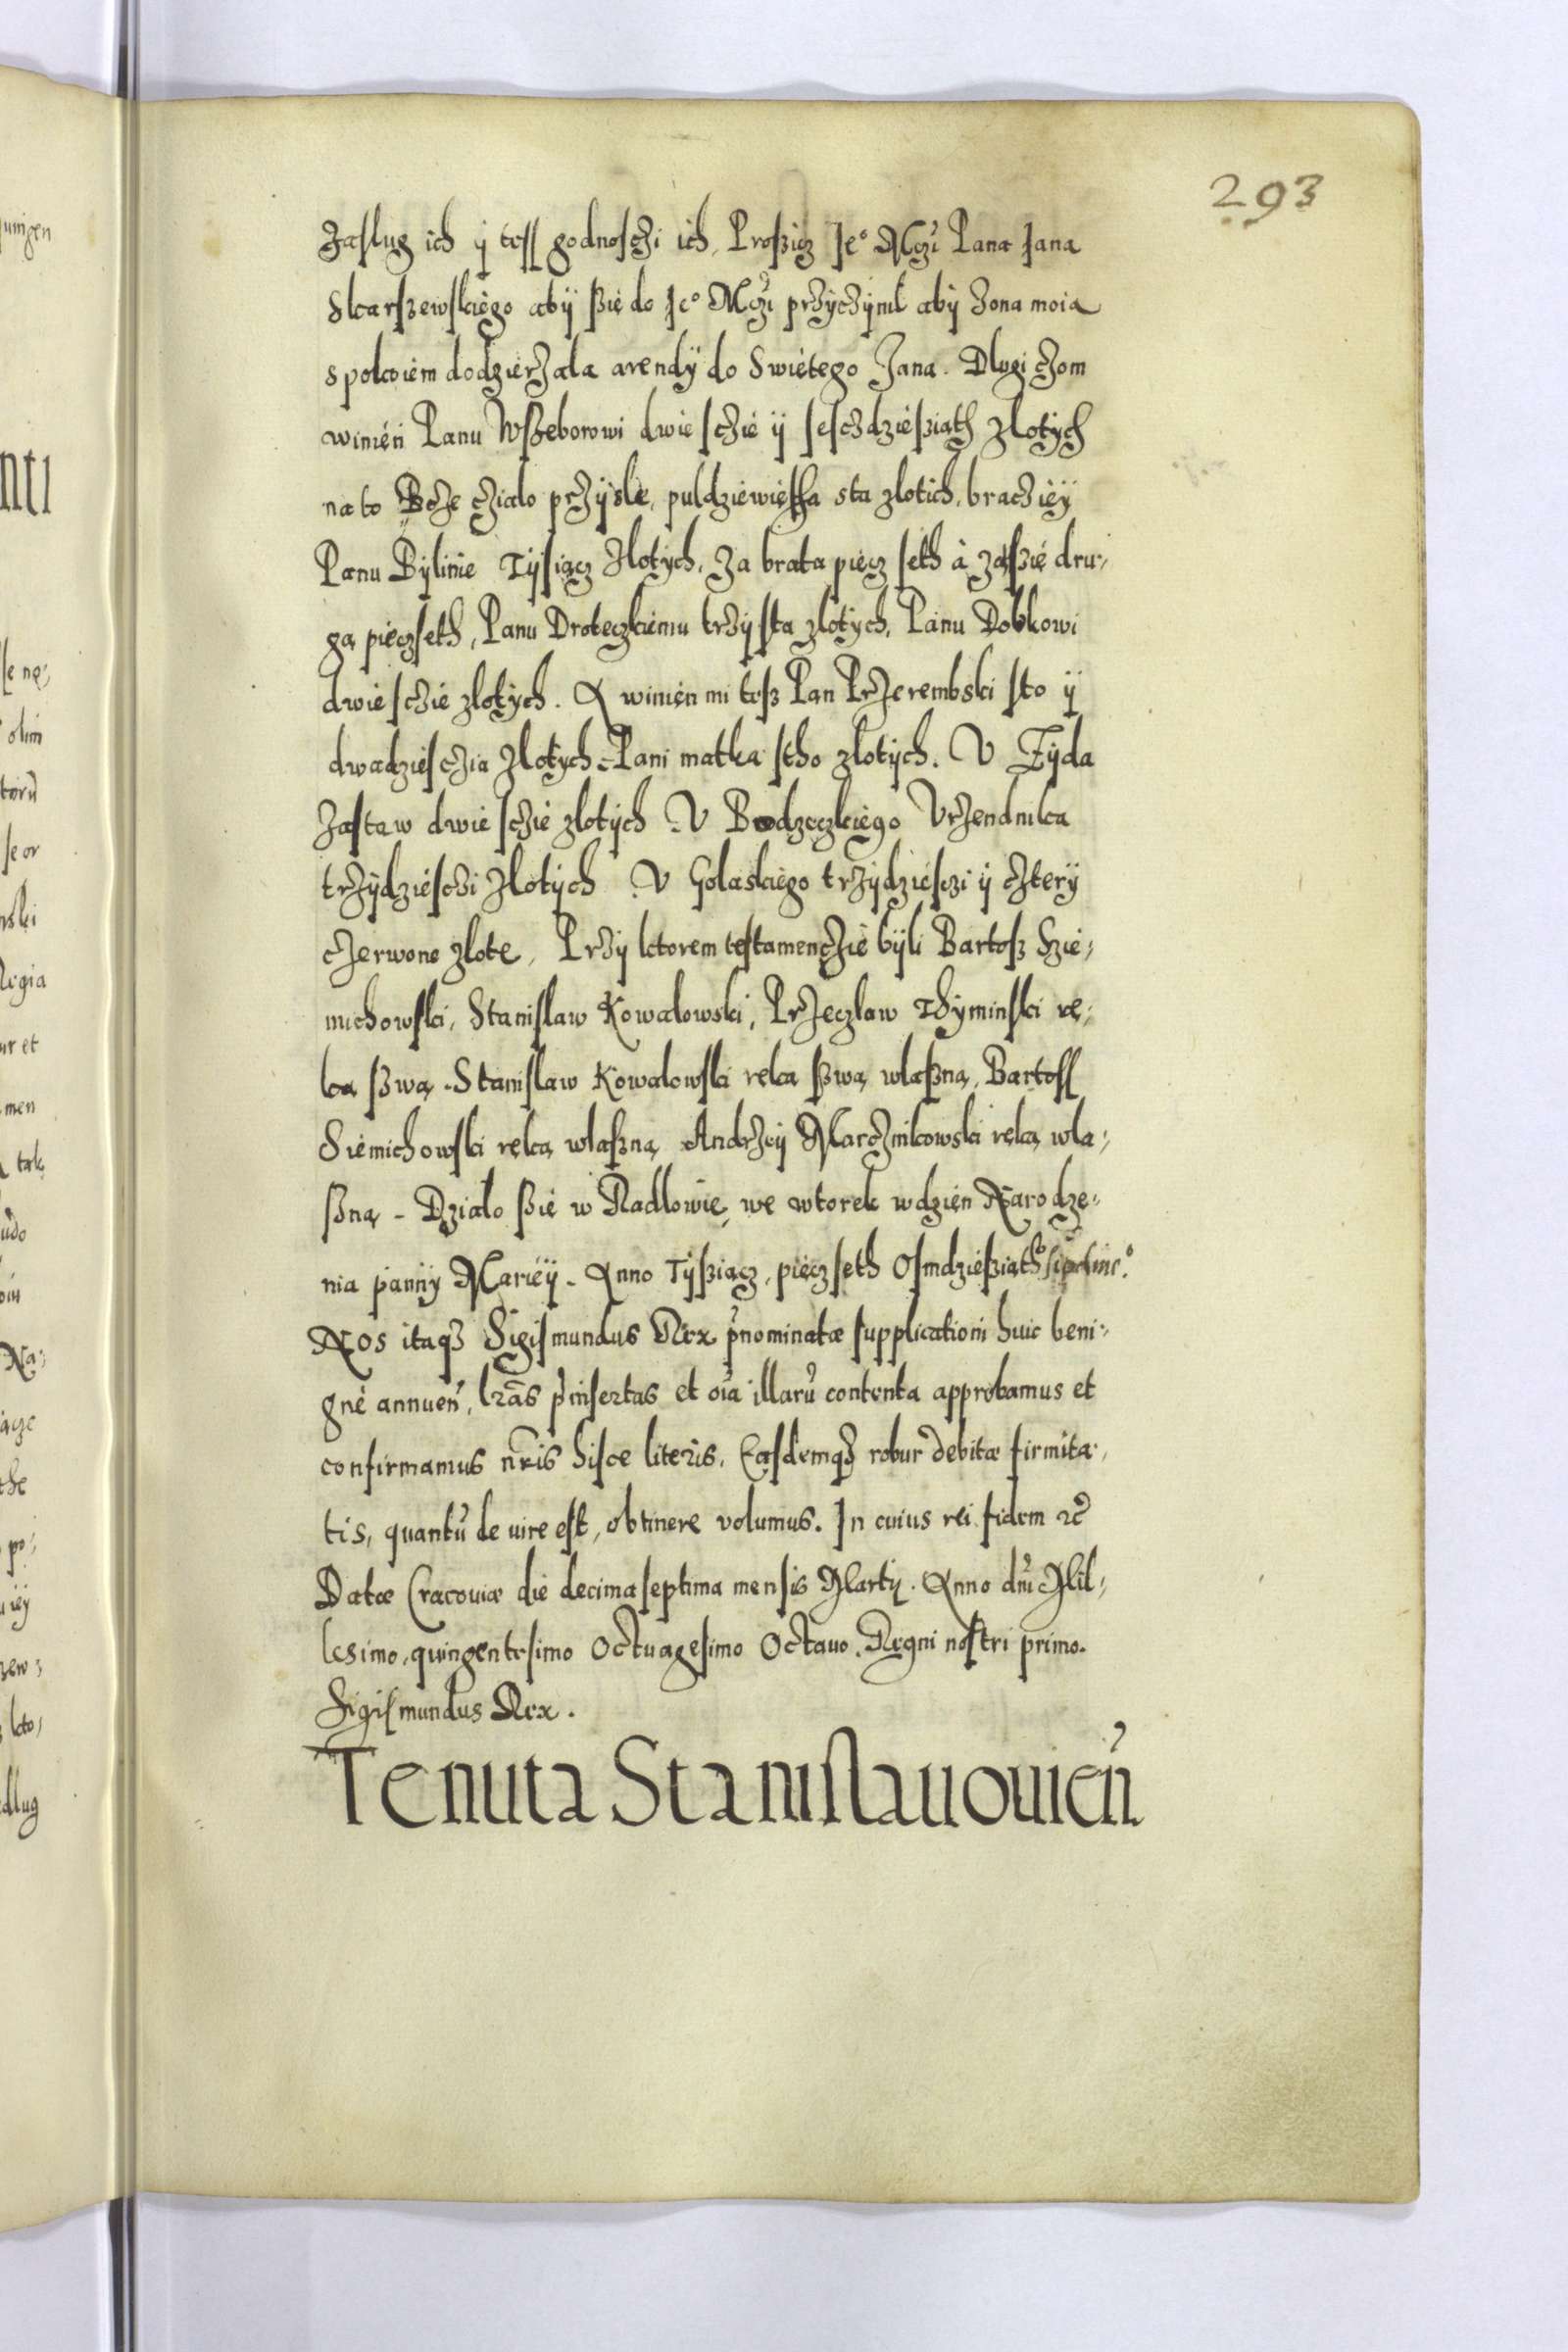 293
Zasług ich ij tess godnosczi ich, Proszicz Je° Mczi Pana Jana
Skarszewskiego abij szię do Je° Mczi przijczijnił abij żona moia
spokoiem dodzierżała arendij do Swiętego Jana. Dlugi czom
winien Panu Wszeborowi dwieschie ij sesczdziesziath złotijch
na to Boże cziało przijsłe, puldziewięßa sta złotich, bracziëij
Panu Bijlinie Tijsiącz złotijch, za brata pięcz seth à zaszię dru-
ga pięczseth, Panu Droteczkiemu trzijsta złotijch, Panu Dobkowi
dwiesczie złotijch. A winien mi tesz Pan Przerembski sto ij
dwadziesczia złotijch, Pani matka stho złotijch. V Żijda
zastaw dwiesczie złotijch V Bodzęczkiego Vrzendnika
trzijdziesczi złotijch V Golaskiego trzijdziesczi ij czterij
czerwone złote, Przij ktorem testamenczie bijli Bartosz Szie-
michowski, Stanisław Kowalowski, Przeczław Thijminski rę-
ka szwą. Stanisław Kowalowski ręka szwą własną, Bartoss
Siemichowski ręką własną Andrzeij Marcznikowski ręką wła-
szną - Działo szię w Radłowie, we wtorek w dzien Narodze-
nia pannij Mariëij. Anno Tijsziącz, pięczseth Osmdziesziath
Nos itaq3 Sigismundus Rex pnominatæ supplicationi huic beni-
gnè annuen, lras pinsertas et oia illarũ contenta approbamus et
confirmamus nris hisce literis, Easdemq3 robur debitæ firmita-
tis, quantũ de iure est, obtinere volumus. In cuius rei fidem &c
Datæ Cracouiæ die decima septima mensis Martij. Anno dni Mil-
lesimo, quingentesimo Octuagesimo Octauo. Regni nostri primo.
Sigismundus Rex.
Tenuta Stanislauouien